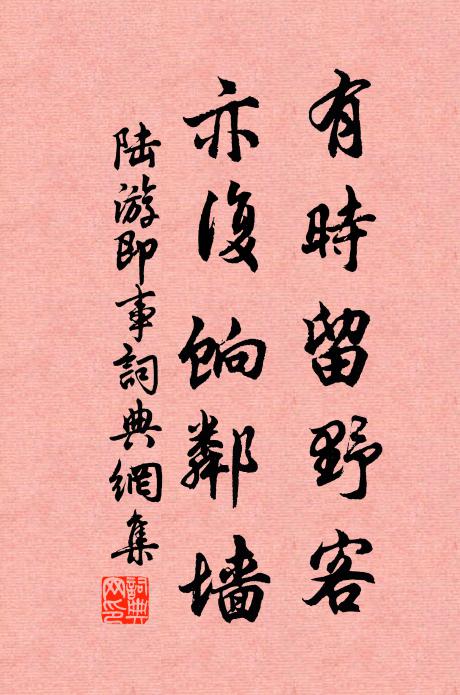 有時留野客
亦復餉鄰墻
陸游即事詞典網集
詞典
网印